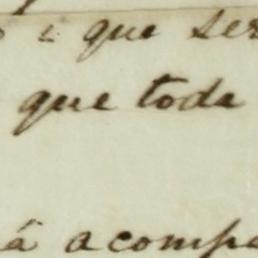 é que ser
que toda
á acompa